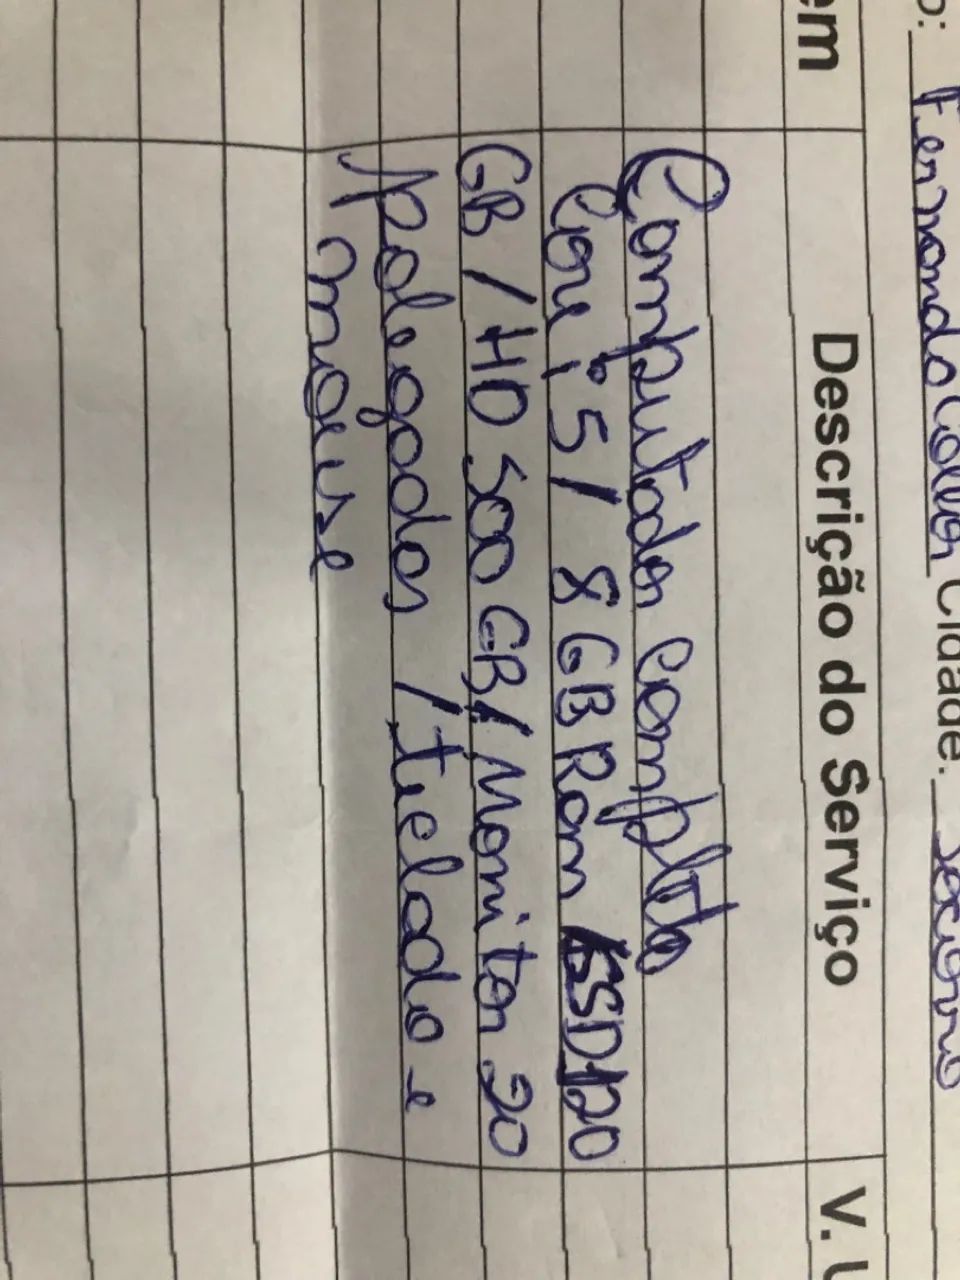 o: Fernando Collor Cidade. Socorro
em Descrição do Serviço V. U
Computador Completo
Core i5 / 8 GB Ram / SSD 120
GB / HD 500 GB / Monitor 20
Apolegadas / teclado e
mause